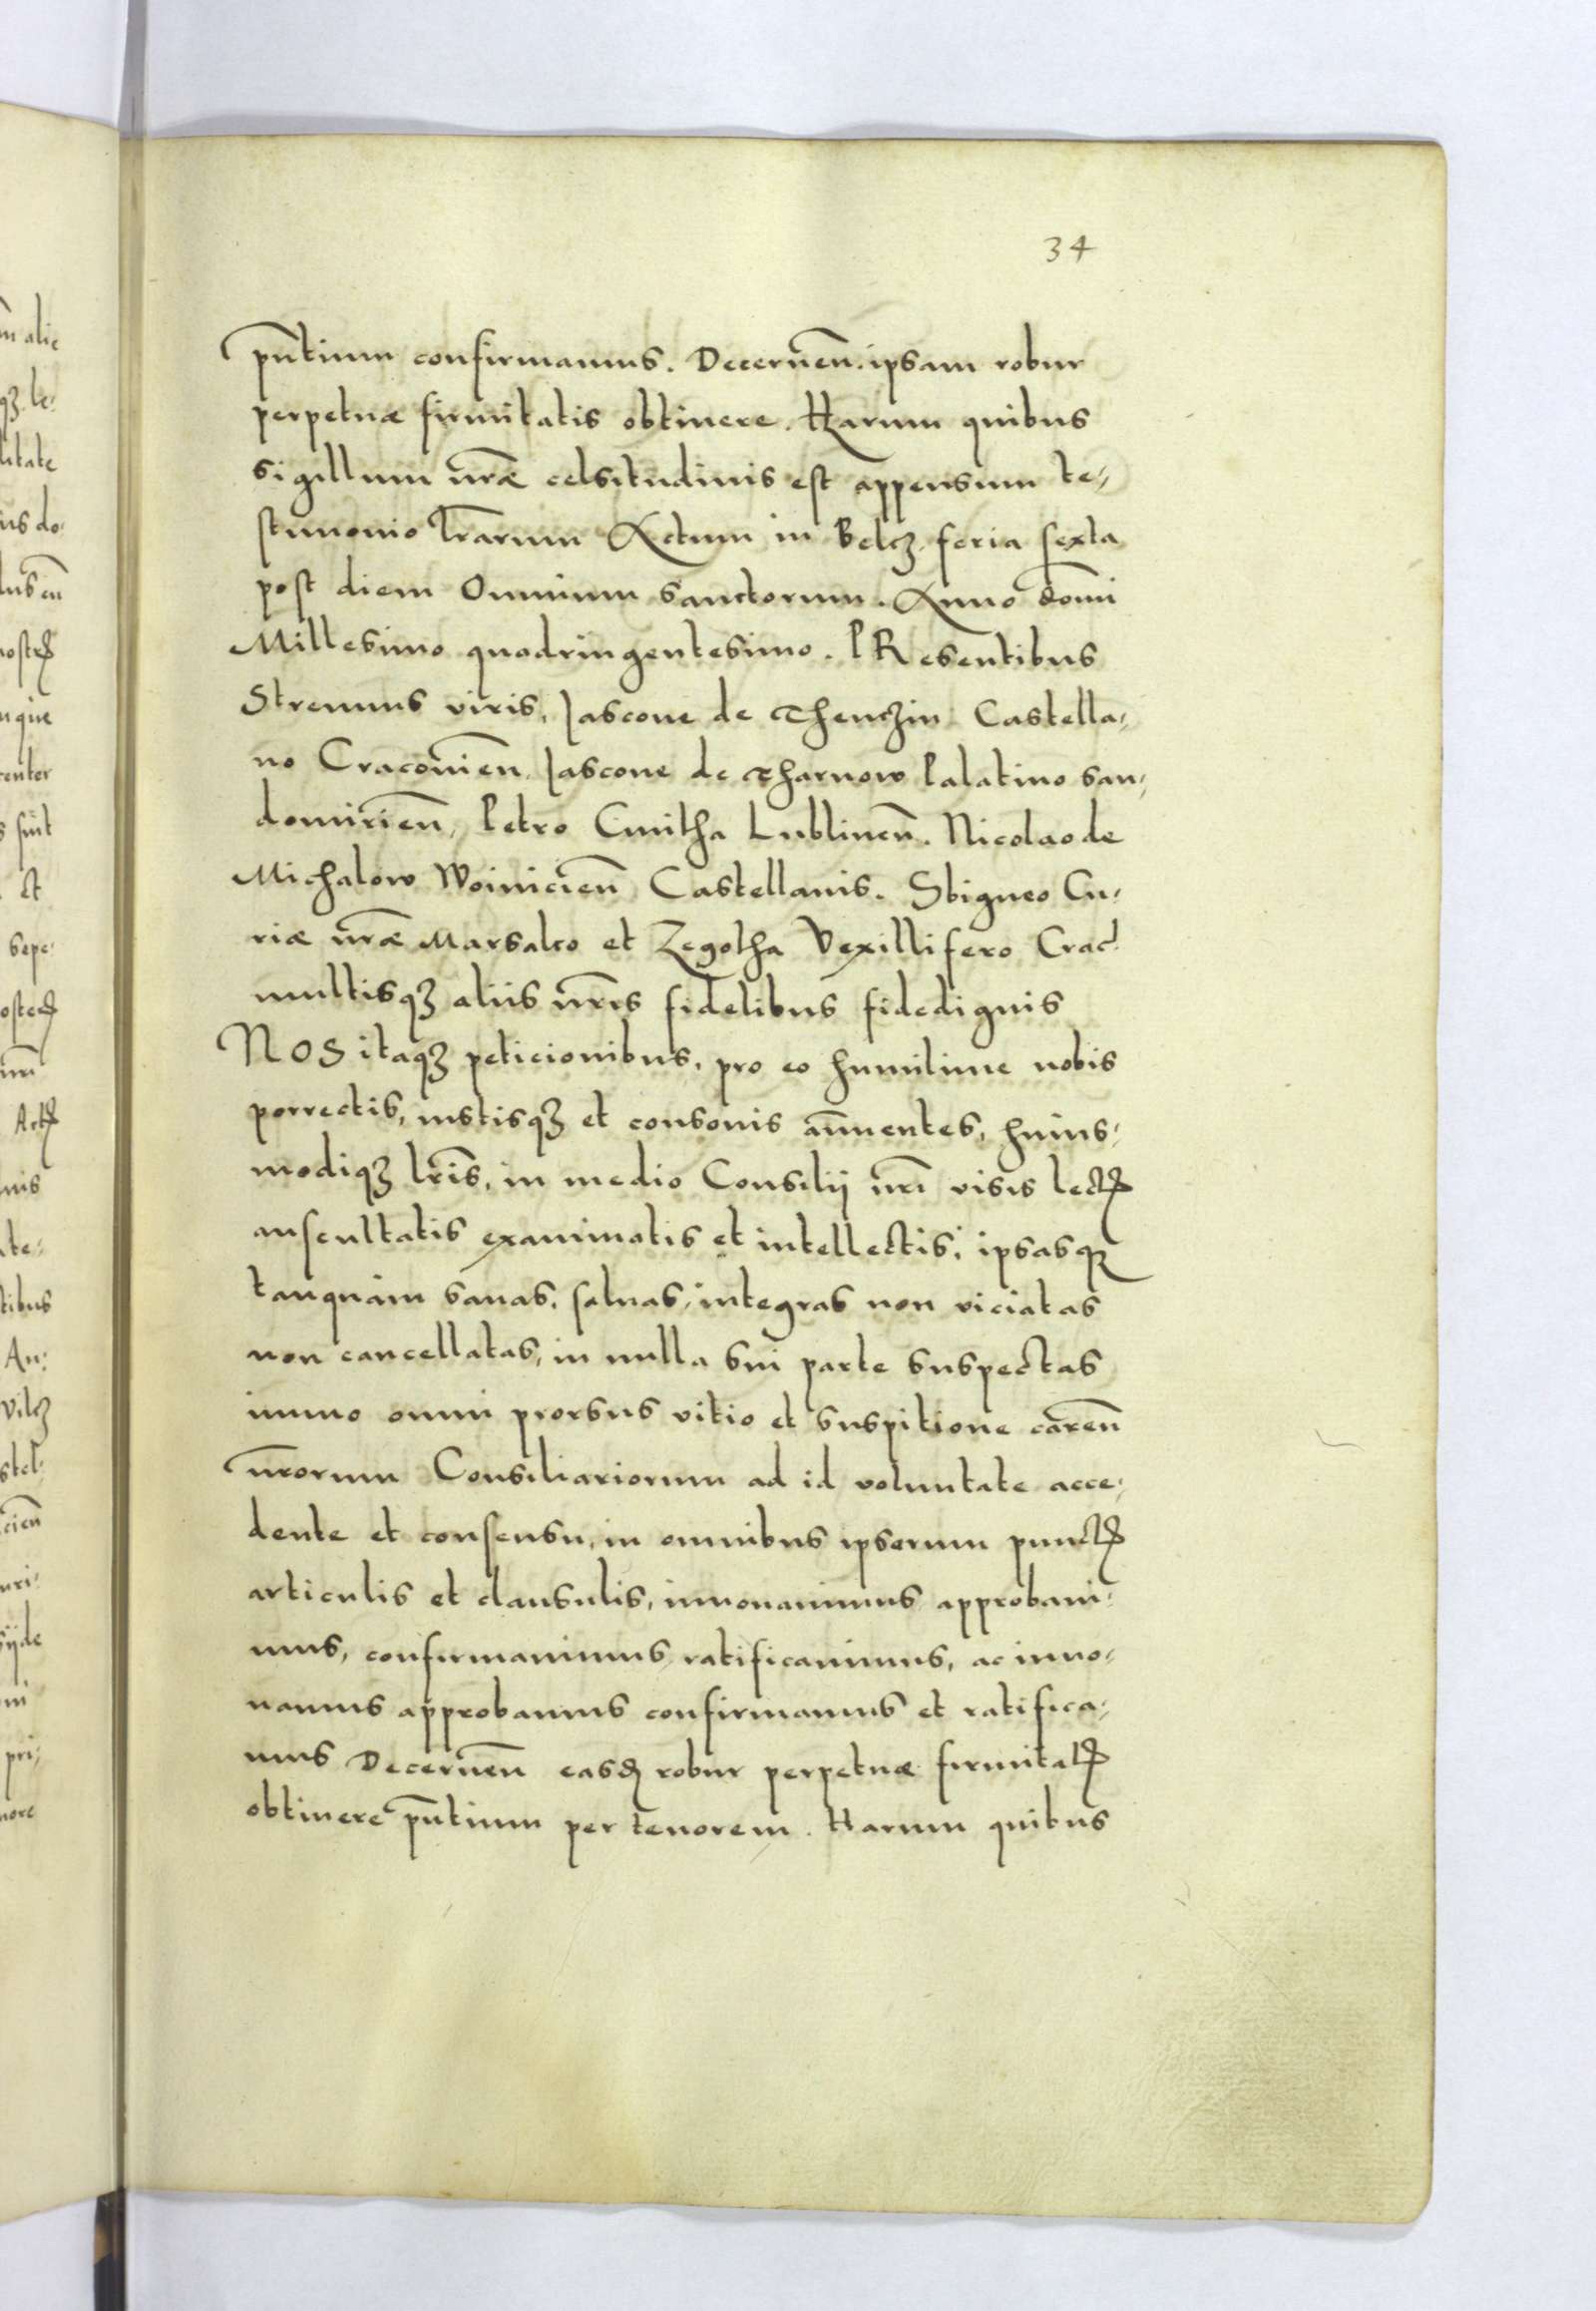 34
pn̄tium confirmamus. Decerneñ. ipsam robur
perpetuæ firmitatis obtinere. Harum quibus
sigillum nr̄æ celsitudinis est appensum te-
stimonio lr̄arum Actum in Belcz. feria sexta
post diem Omnium sanctorum. Anno domi
Millesimo quadringentesimo. PResentibus
Strenuus viris, Jascone de Thenczin Castella-
no Cracovieñ. Jascone de Tharnow Palatino san-
domirieñ, Petro Cmitha Lublineñ. Nicolao de
Michalow Woinicieñ Castellanis. Sbigneo Cu-
riæ nr̄æ Marsalco et Zegotha Vexillifero Crac̄
multisqꝫ aliis nr̄is fidelibus fidedignis
NOS itaqꝫ peticionibus, pro eo humilime nobis
porrectis, iustisqꝫ et consonis añuentes, huius-
modiqꝫ lr̄is, in medio Consilij nr̄i visis lectꝭ
auscultatis examinatis et intellectis, ipsasqꝫ
tanquàm sanas, saluas, integras non viciatas
non cancellatas, in nulla sui parte suspectas
immo omni prorsus vitio et suspitione careñ
nr̄orum Consiliariorum ad id voluntate acce-
dente et consensu, in omnibus ipsorum punctꝭ
articulis et clausulis, innouauimus approbaui-
mus, confirmauimus ratificauimus, ac inno-
uamus approbamus confirmamus et ratifica-
mus Decerneñ easdꝭ robur perpetuæ firmitatꝭ
obtinere pn̄tium per tenorem. Harum quibus